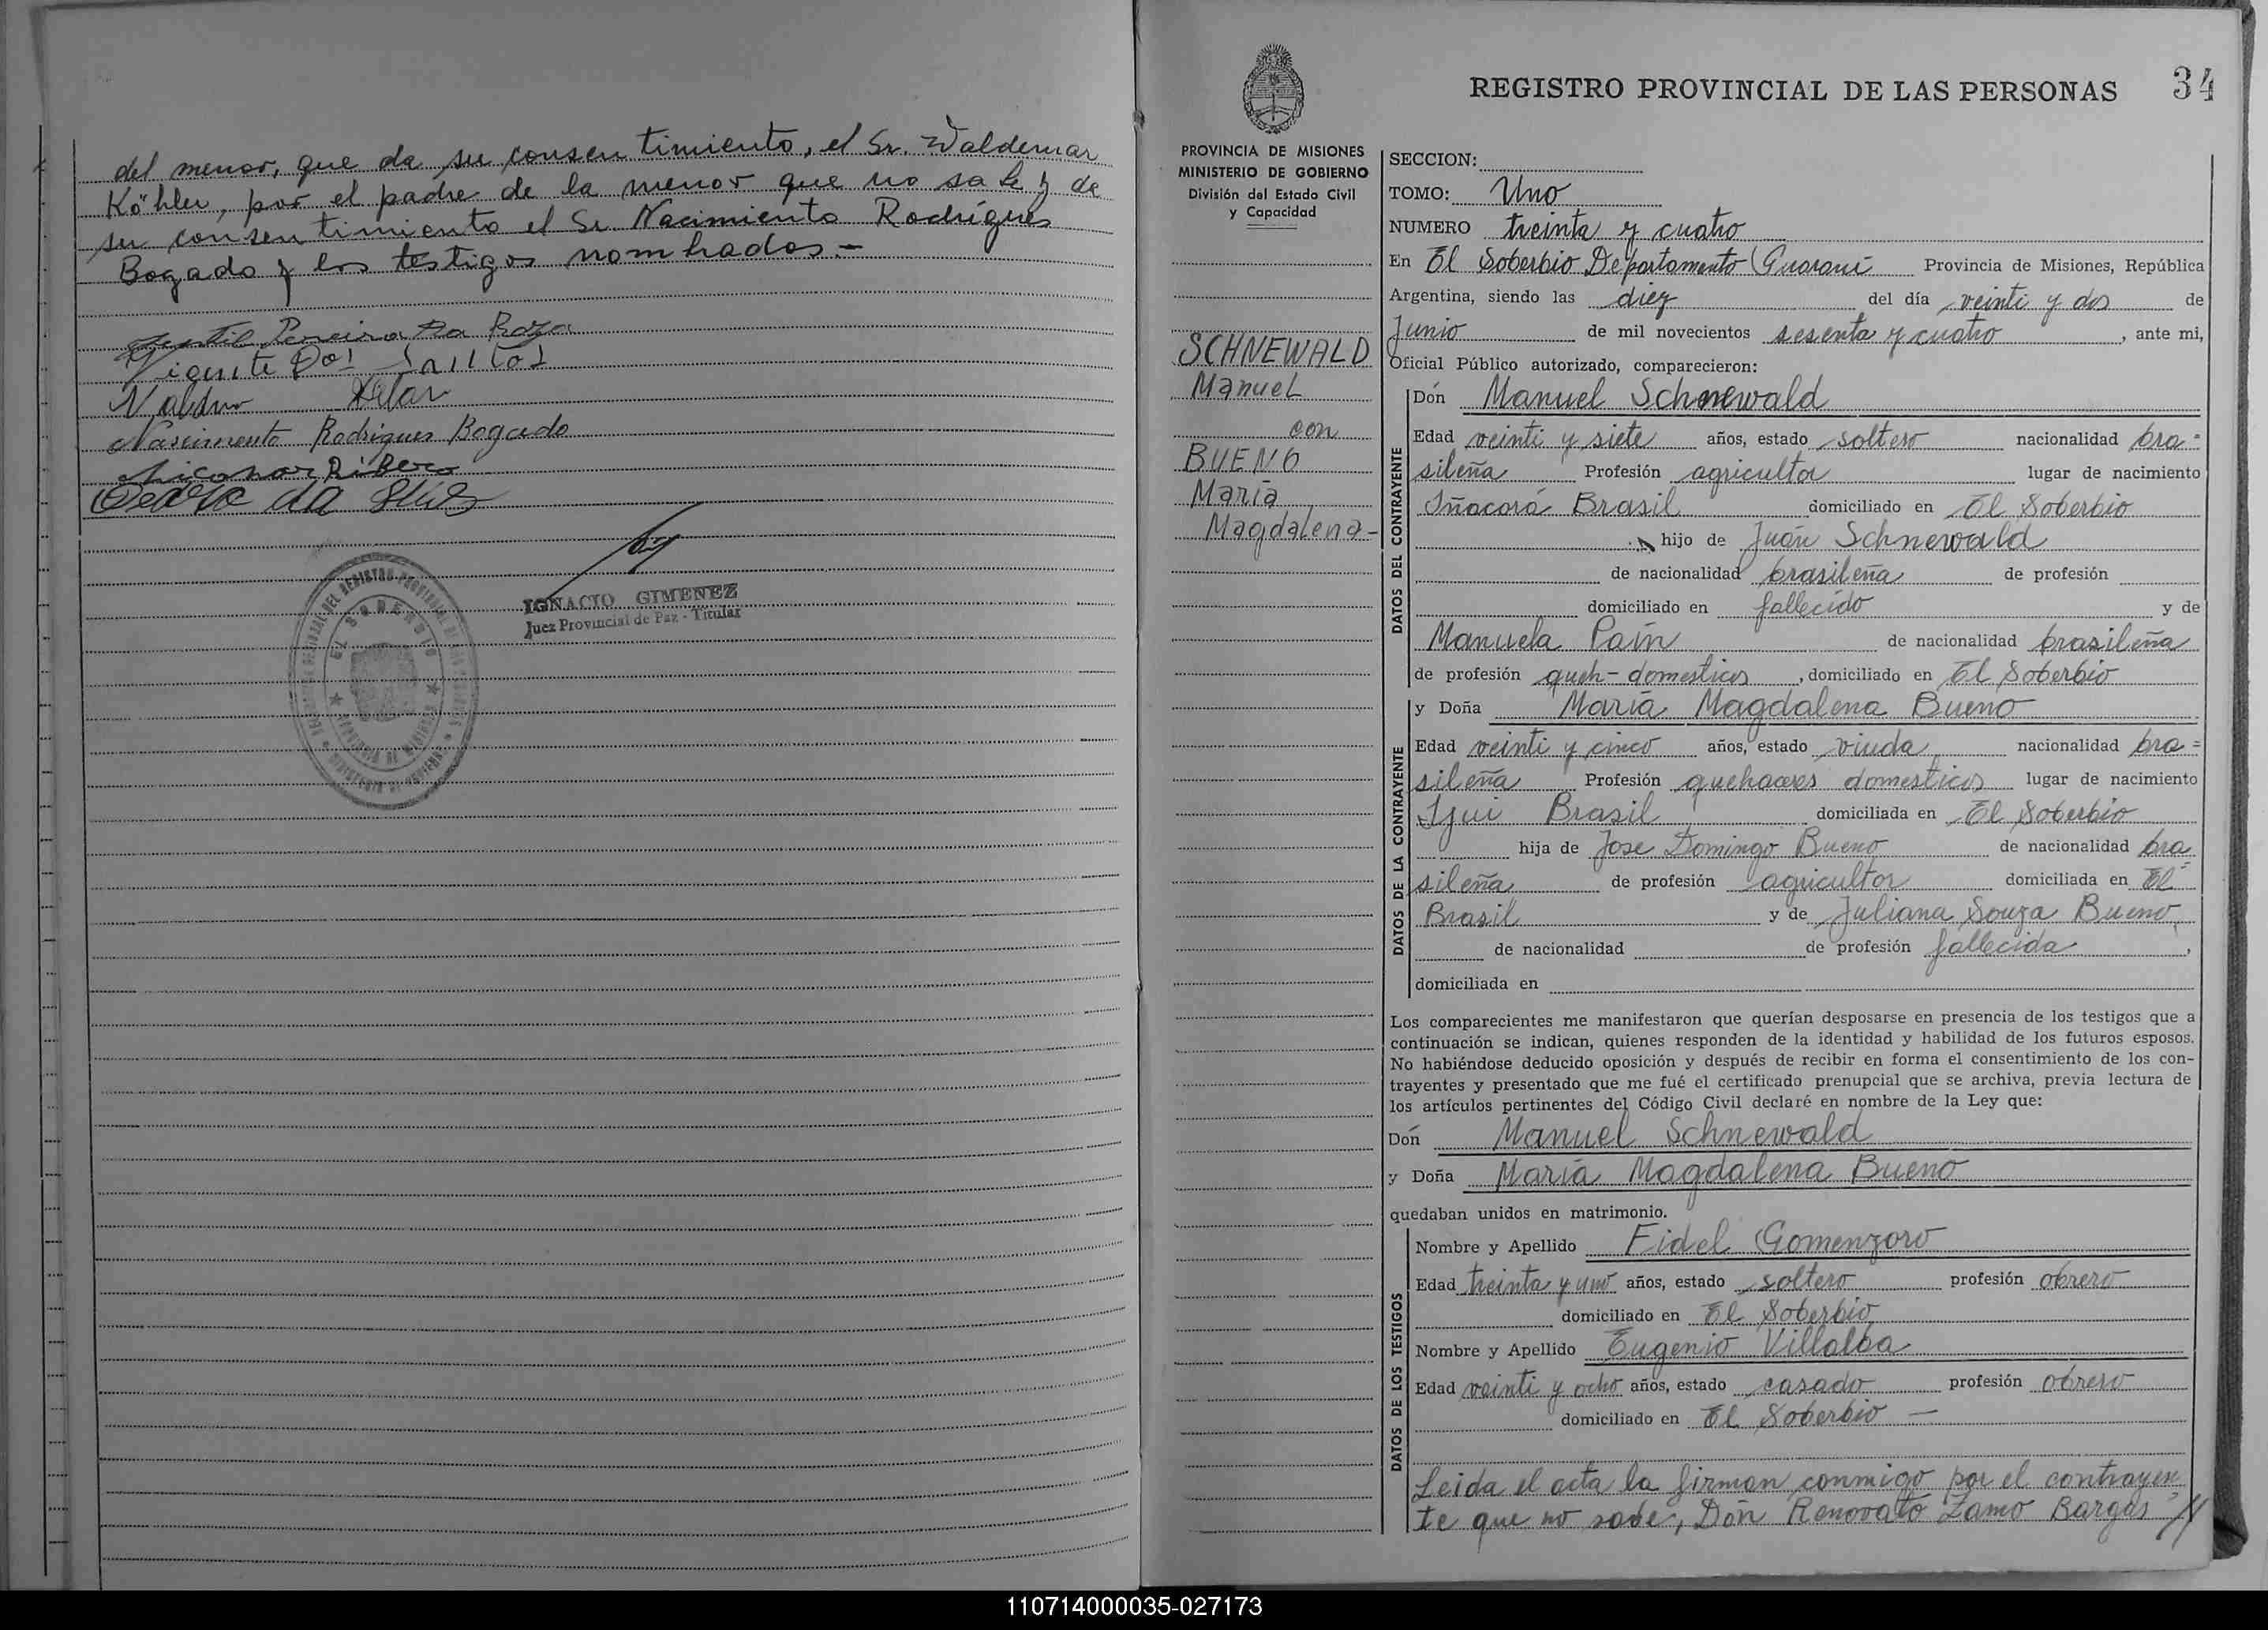 del menor, que da su consentimiento, el Sr. Waldemar
Köhler, por el padre de la menor que no sabe y de
su consentimiento el Sr. Nacimiento Rodrígues
Bogado y los testigos nombrados.-
Gentil Pereira Da Roza
Vicente Dos Santos
Nascimento Rodrigues Bogado
Nicanor Ribero
IGNACIO GIMENEZ
Juez Provincial de Paz - Titular
EL SOBERBIO
REGISTRO PROVINCIAL DE LAS PERSONAS 34
PROVINCIA DE MISIONES
MINISTERIO DE GOBIERNO
División del Estado Civil
y Capacidad
SCHNEWALD
Manuel
con
BUENO
María
Magdalena-
SECCION:
TOMO: Uno
NUMERO treinta y cuatro
En El Soberbio Departamento Guaraní Provincia de Misiones, República
Argentina, siendo las diez del día veinti y dos de
Junio de mil novecientos sesenta y cuatro, ante mi,
Oficial Público autorizado, comparecieron:
DATOS DEL CONTRAYENTE
Dón Manuel Schnewald
Edad veinti y siete años, estado soltero nacionalidad bra=
sileña Profesión agricultor lugar de nacimiento
Iñacorá Brasil domiciliado en El Soberbio
hijo de Juán Schnewald
de nacionalidad brasileña de profesión
domiciliado en fallecido y de
Manuela Paín de nacionalidad brasileña
de profesión queh-domesticos, domiciliado en El Soberbio
DATOS DE LA CONTRAYENTE
y Doña María Magdalena Bueno
Edad veinti y cinco años, estado viuda nacionalidad bra=
sileña Profesión quehaceres domesticos lugar de nacimiento
Ijui Brasil domiciliada en El Soberbio
hija de Jose Domingo Bueno de nacionalidad bra=
sileña de profesión agricultor domiciliada en El
Brasil y de Juliana Souza Bueno,
de nacionalidad de profesión fallecida,
domiciliada en
Los comparecientes me manifestaron que querían desposarse en presencia de los testigos que a
continuación se indican, quienes responden de la identidad y habilidad de los futuros esposos.
No habiéndose deducido oposición y después de recibir en forma el consentimiento de los con-
trayentes y presentado que me fué el certificado prenupcial que se archiva, previa lectura de
los artículos pertinentes del Código Civil declaré en nombre de la Ley que:
Dón Manuel Schnewald
y Doña María Magdalena Bueno
quedaban unidos en matrimonio.
DATOS DE LOS TESTIGOS
Nombre y Apellido Fidel Gomenzoro
Edad treinta y uno años, estado soltero profesión obrero
domiciliado en El Soberbio
Nombre y Apellido Eugenio Villalba
Edad veinti y ocho años, estado casado profesión obrero
domiciliado en El Soberbio —
Leida el acta la firman conmigo por el contrayen=
te que no sabe, Dón Renovato Lamo Bargas //
110714000035-027173